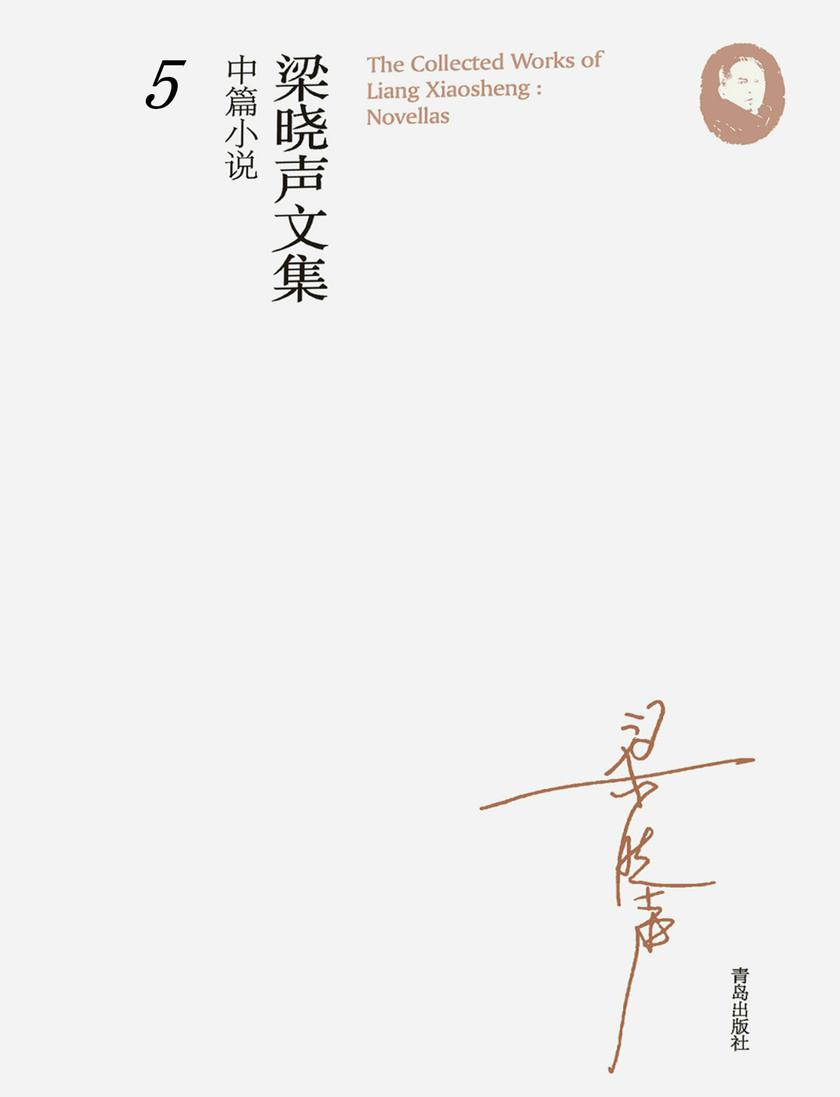 梁晓声文集
中篇小说
5
The Collected Works of
Liang Xiaosheng :
Novellas
梁晓声
青岛出版社